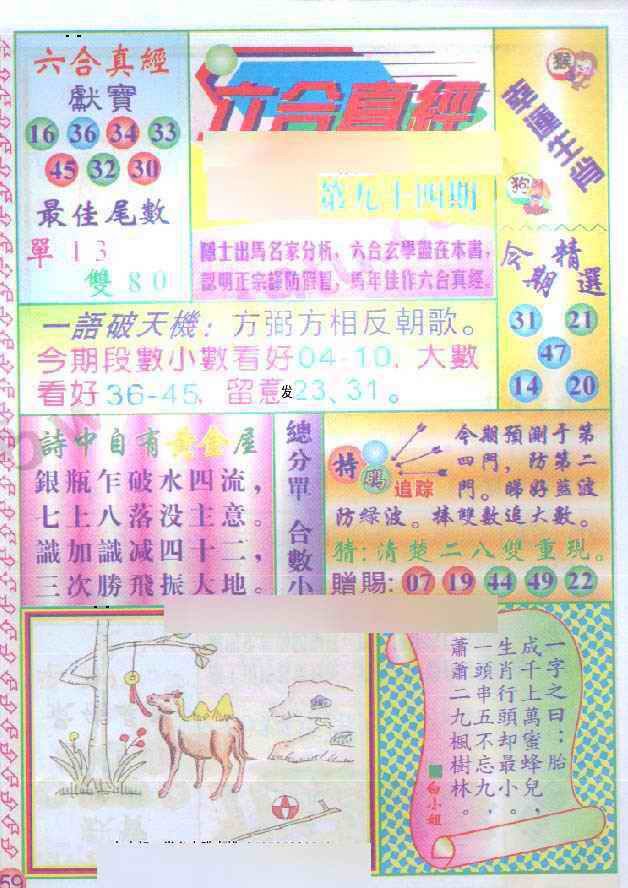 六合真經
獻寶
16 36 34 33
45 32 30
最佳尾數
單 1 3
雙 8 0
六合真經
第九十四期
隱士出馬名家分析，六合玄學盡在本書，
認明正宗謹防假冒，馬年佳作六合真經。
猴
幸運生肖
狗
今期精選
31 21
47
14 20
一語破天機：方弼方相反朝歌。
今期段數小數看好04-10，大數
看好36-45，留意23、31。
发
詩中自有黃金屋
銀瓶乍破水四流，
七上八落没主意。
識加識减四十二，
三次勝飛振大地。
總分單 合數小
特碼
追踪
今期預測于第
四門，防第二
門。睇好藍波
防緑波。捧雙數追大數。
猜：清楚二八雙重現。
贈賜：07 19 44 49 22
一字之曰：胎
成千上萬蜜蜂兒，
生肖行頭却最小。
一頭串五不忘九，
蕭蕭二九楓樹林。
白小姐
59